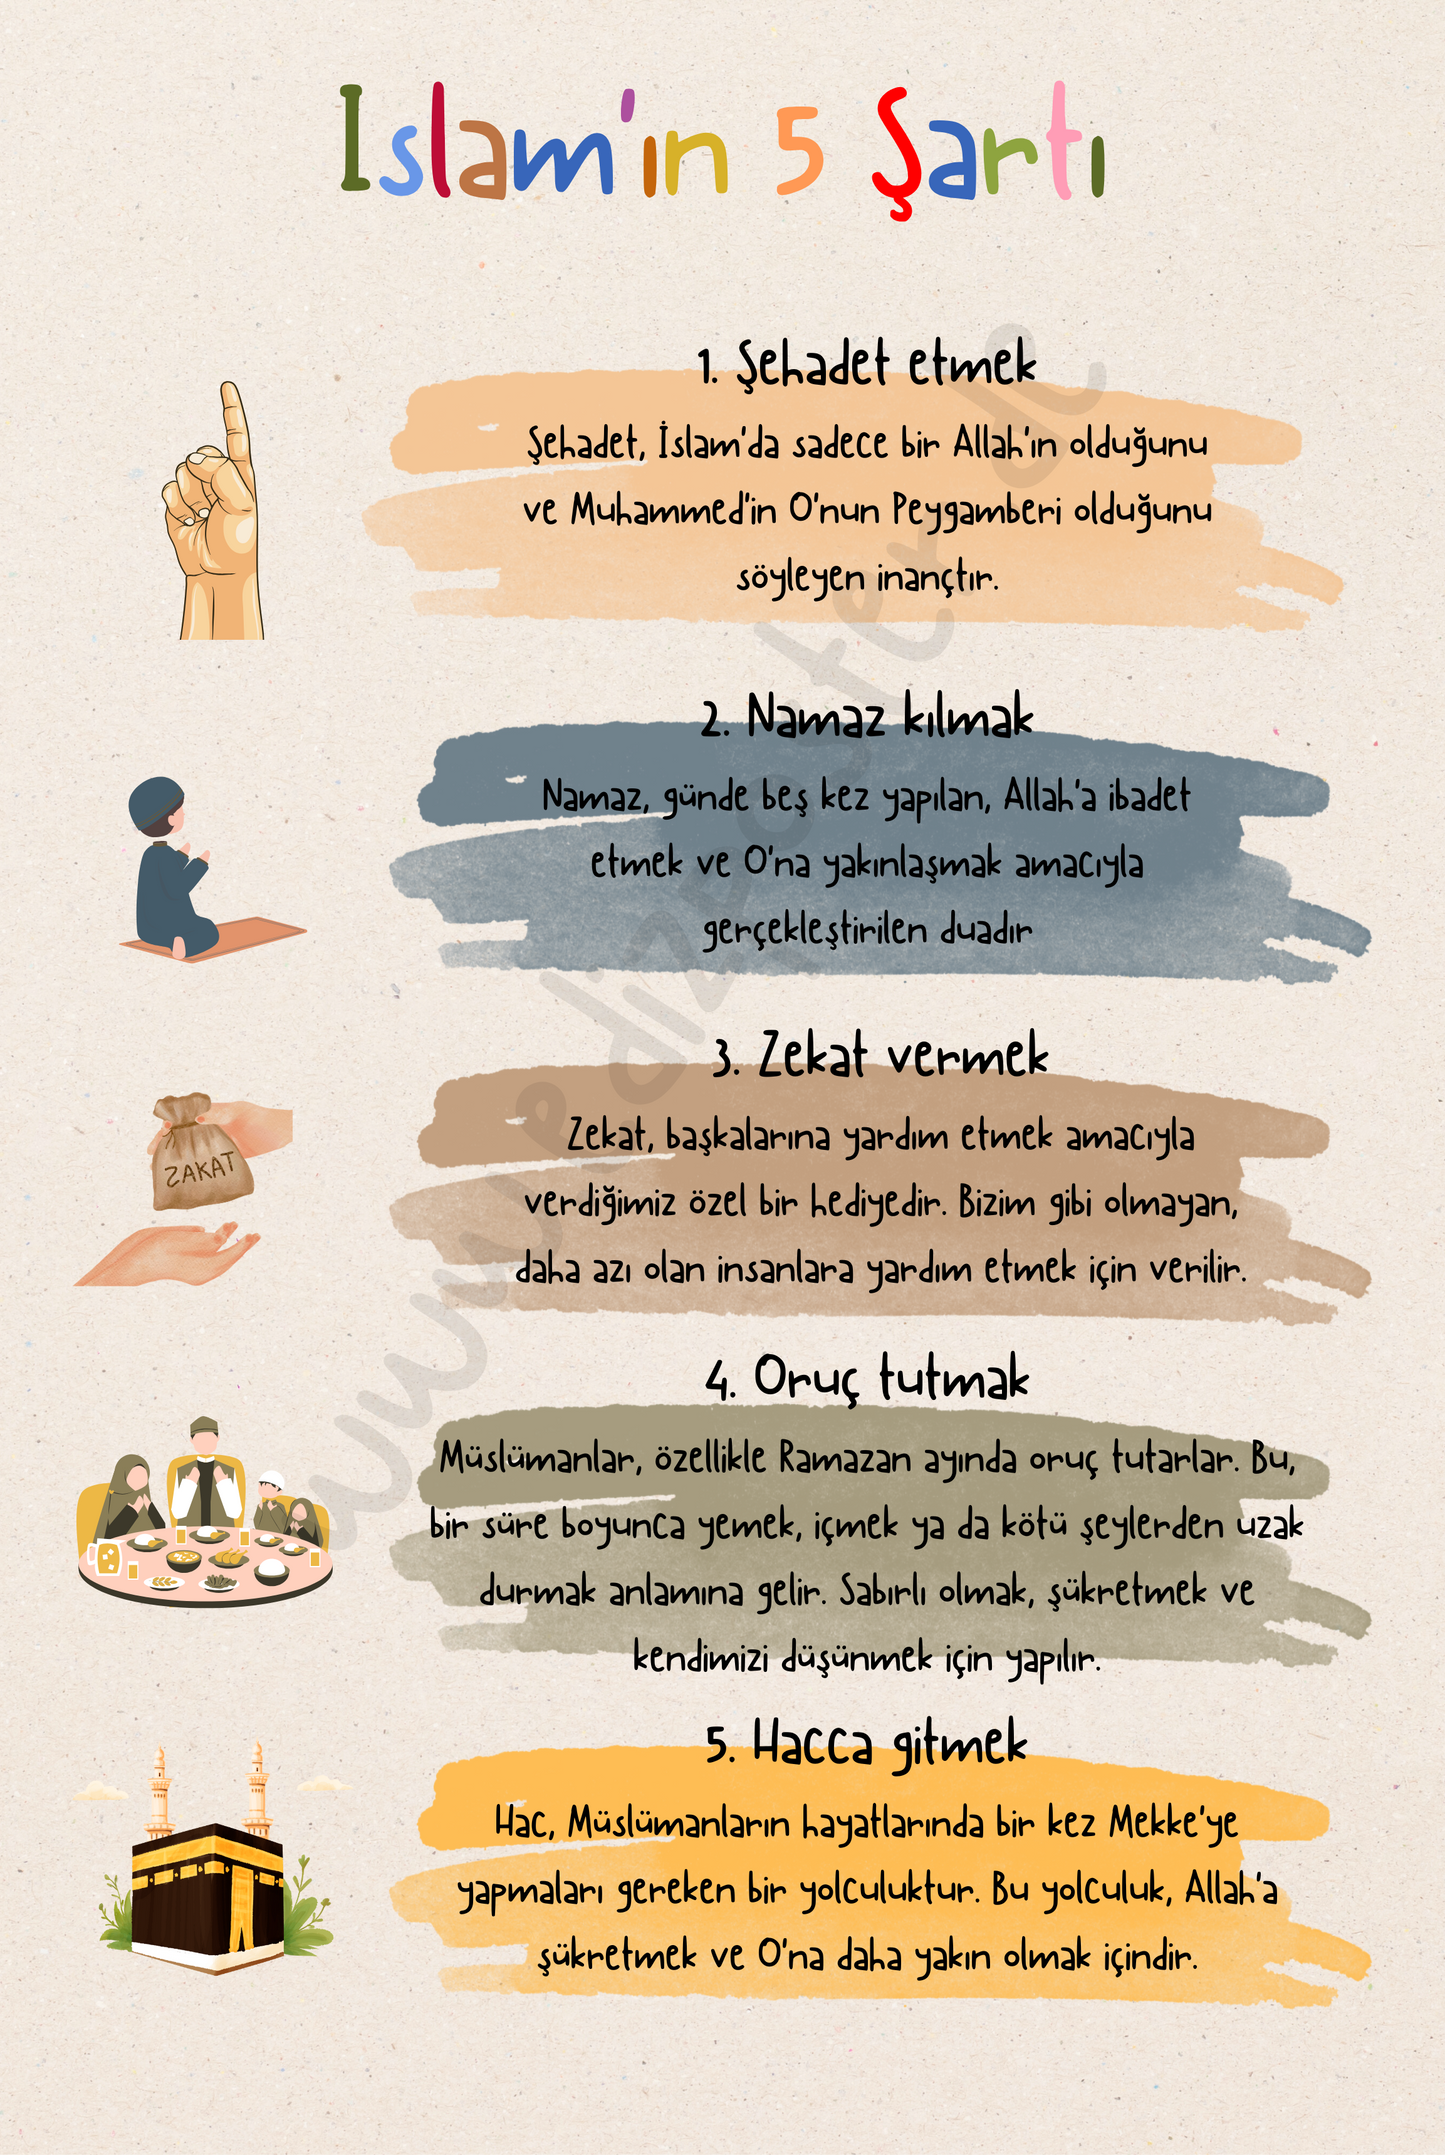 Islam'ın 5 Şartı
1. Şehadet etmek
Şehadet, İslam'da sadece bir Allah'ın olduğunu
ve Muhammed'in O'nun Peygamberi olduğunu
söyleyen inançtır.
2. Namaz kılmak
Namaz, günde beş kez yapılan, Allah'a ibadet
etmek ve O'na yakınlaşmak amacıyla
gerçekleştirilen duadır
3. Zekat vermek
ZAKAT
Zekat, başkalarına yardım etmek amacıyla
verdiğimiz özel bir hediyedir. Bizim gibi olmayan,
daha azı olan insanlara yardım etmek için verilir.
4. Oruç tutmak
Müslümanlar, özellikle Ramazan ayında oruç tutarlar. Bu,
bir süre boyunca yemek, içmek ya da kötü şeylerden uzak
durmak anlamına gelir. Sabırlı olmak, şükretmek ve
kendimizi düşünmek için yapılır.
5. Hacca gitmek
Hac, Müslümanların hayatlarında bir kez Mekke'ye
yapmaları gereken bir yolculuktur. Bu yolculuk, Allah'a
şükretmek ve O'na daha yakın olmak içindir.